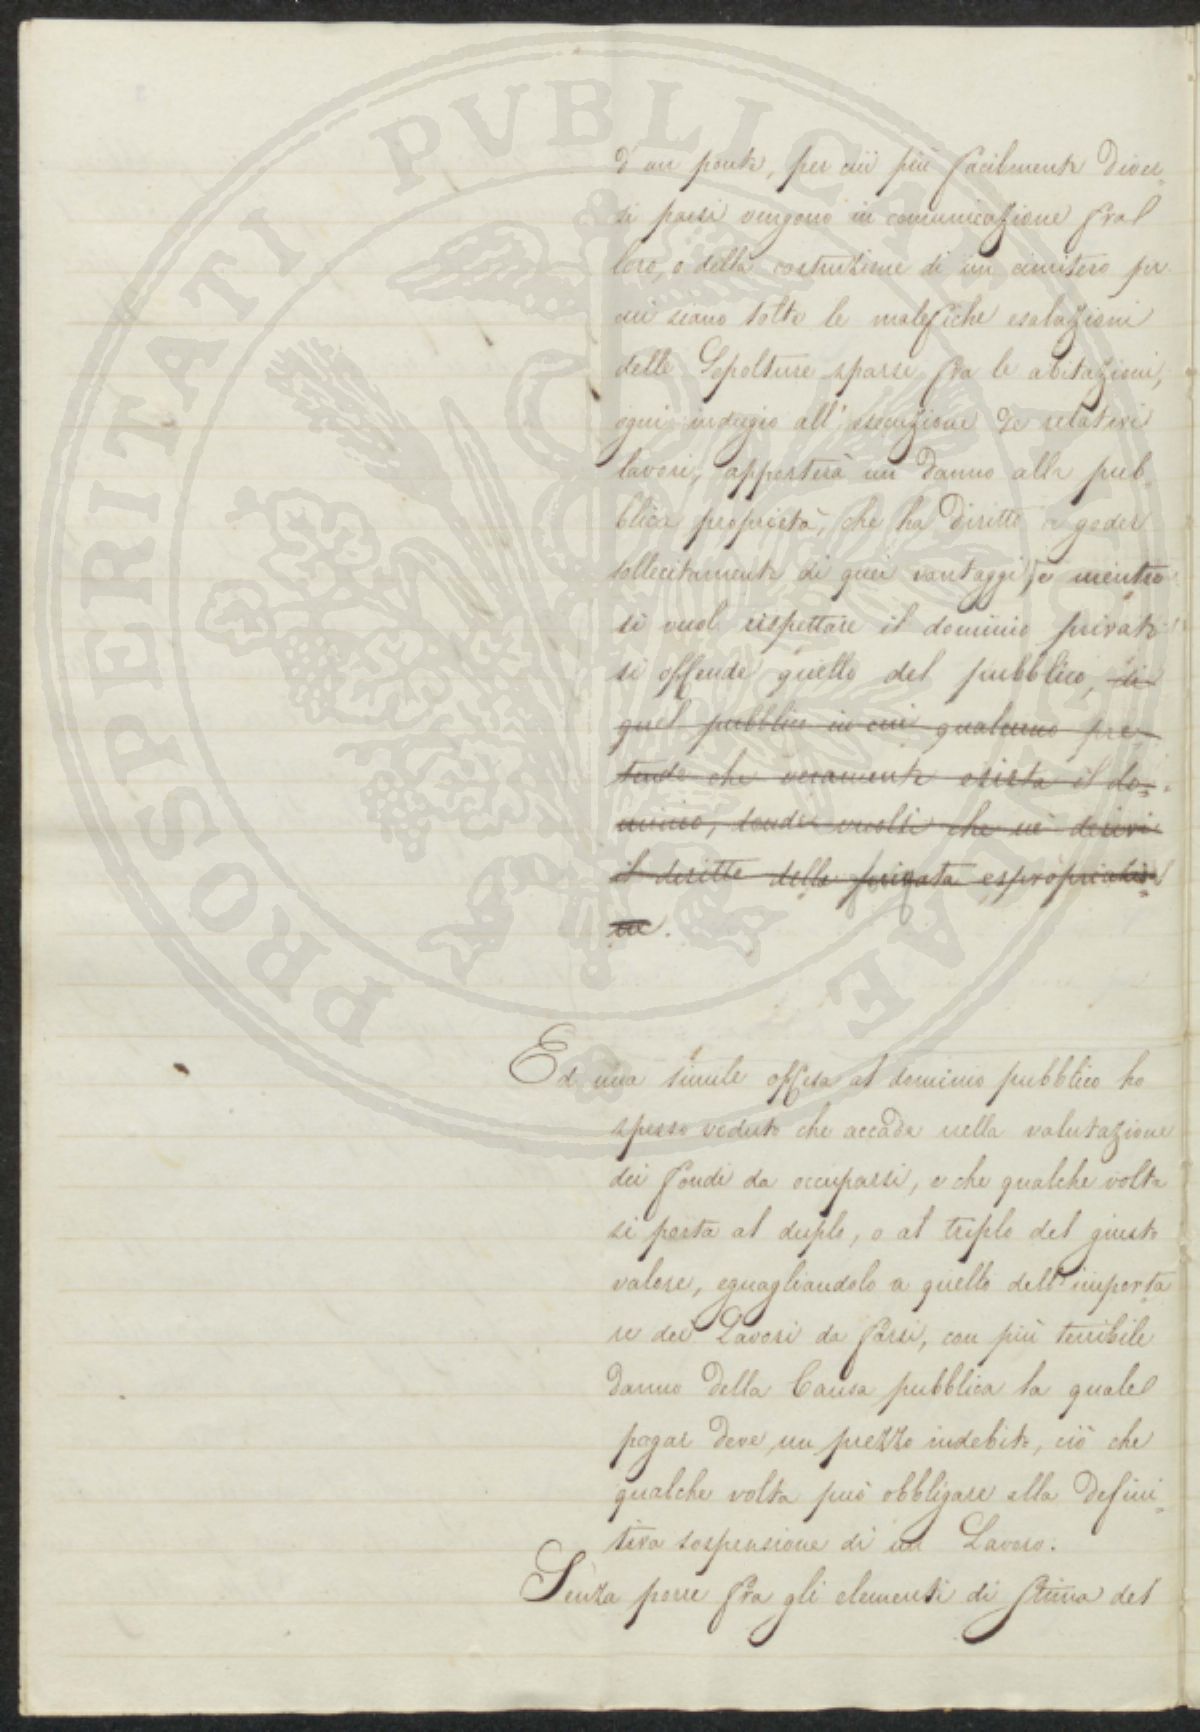 d'un ponte, per cui più facilmente diver-
si paesi vengono in comunicazione fra
loro, o della costruzione di un cimitero per
cui siano tolte le malefiche esalazioni
delle Sepolture sparse fra le abitazioni,
ogni indugio all'esecuzione de relativi
lavori, apporterà un danno alla pub-
blica proprietà, che ha diritto a goder
sollecitamente di quei vantaggi, e mentre
si vuol rispettare il dominio privato
si offende quello del pubblico, di
quel pubblico in cui qualcuno pre-
tende che veramente esista il do-
minio, donde vuolsi che ne derivi
il diritto della privata espropriazio
ne.
Ed una simile offesa al dominio pubblico ho
spesso veduto che accade nella valutazione
dei fondi da occuparsi, e che qualche volta
si porta al duplo, o al triplo del giusto
valore, eguagliandolo a quello dell'importa
re dei Lavori da farsi, con più terribile
danno della Causa pubblica la quale
pagar deve un prezzo indebito, ciò che
qualche volta può obbligare alla defini-
tiva sospensione di un Lavoro.
Senza porre fra gli elementi di stima del
PROSPERITATI PUBLICAE